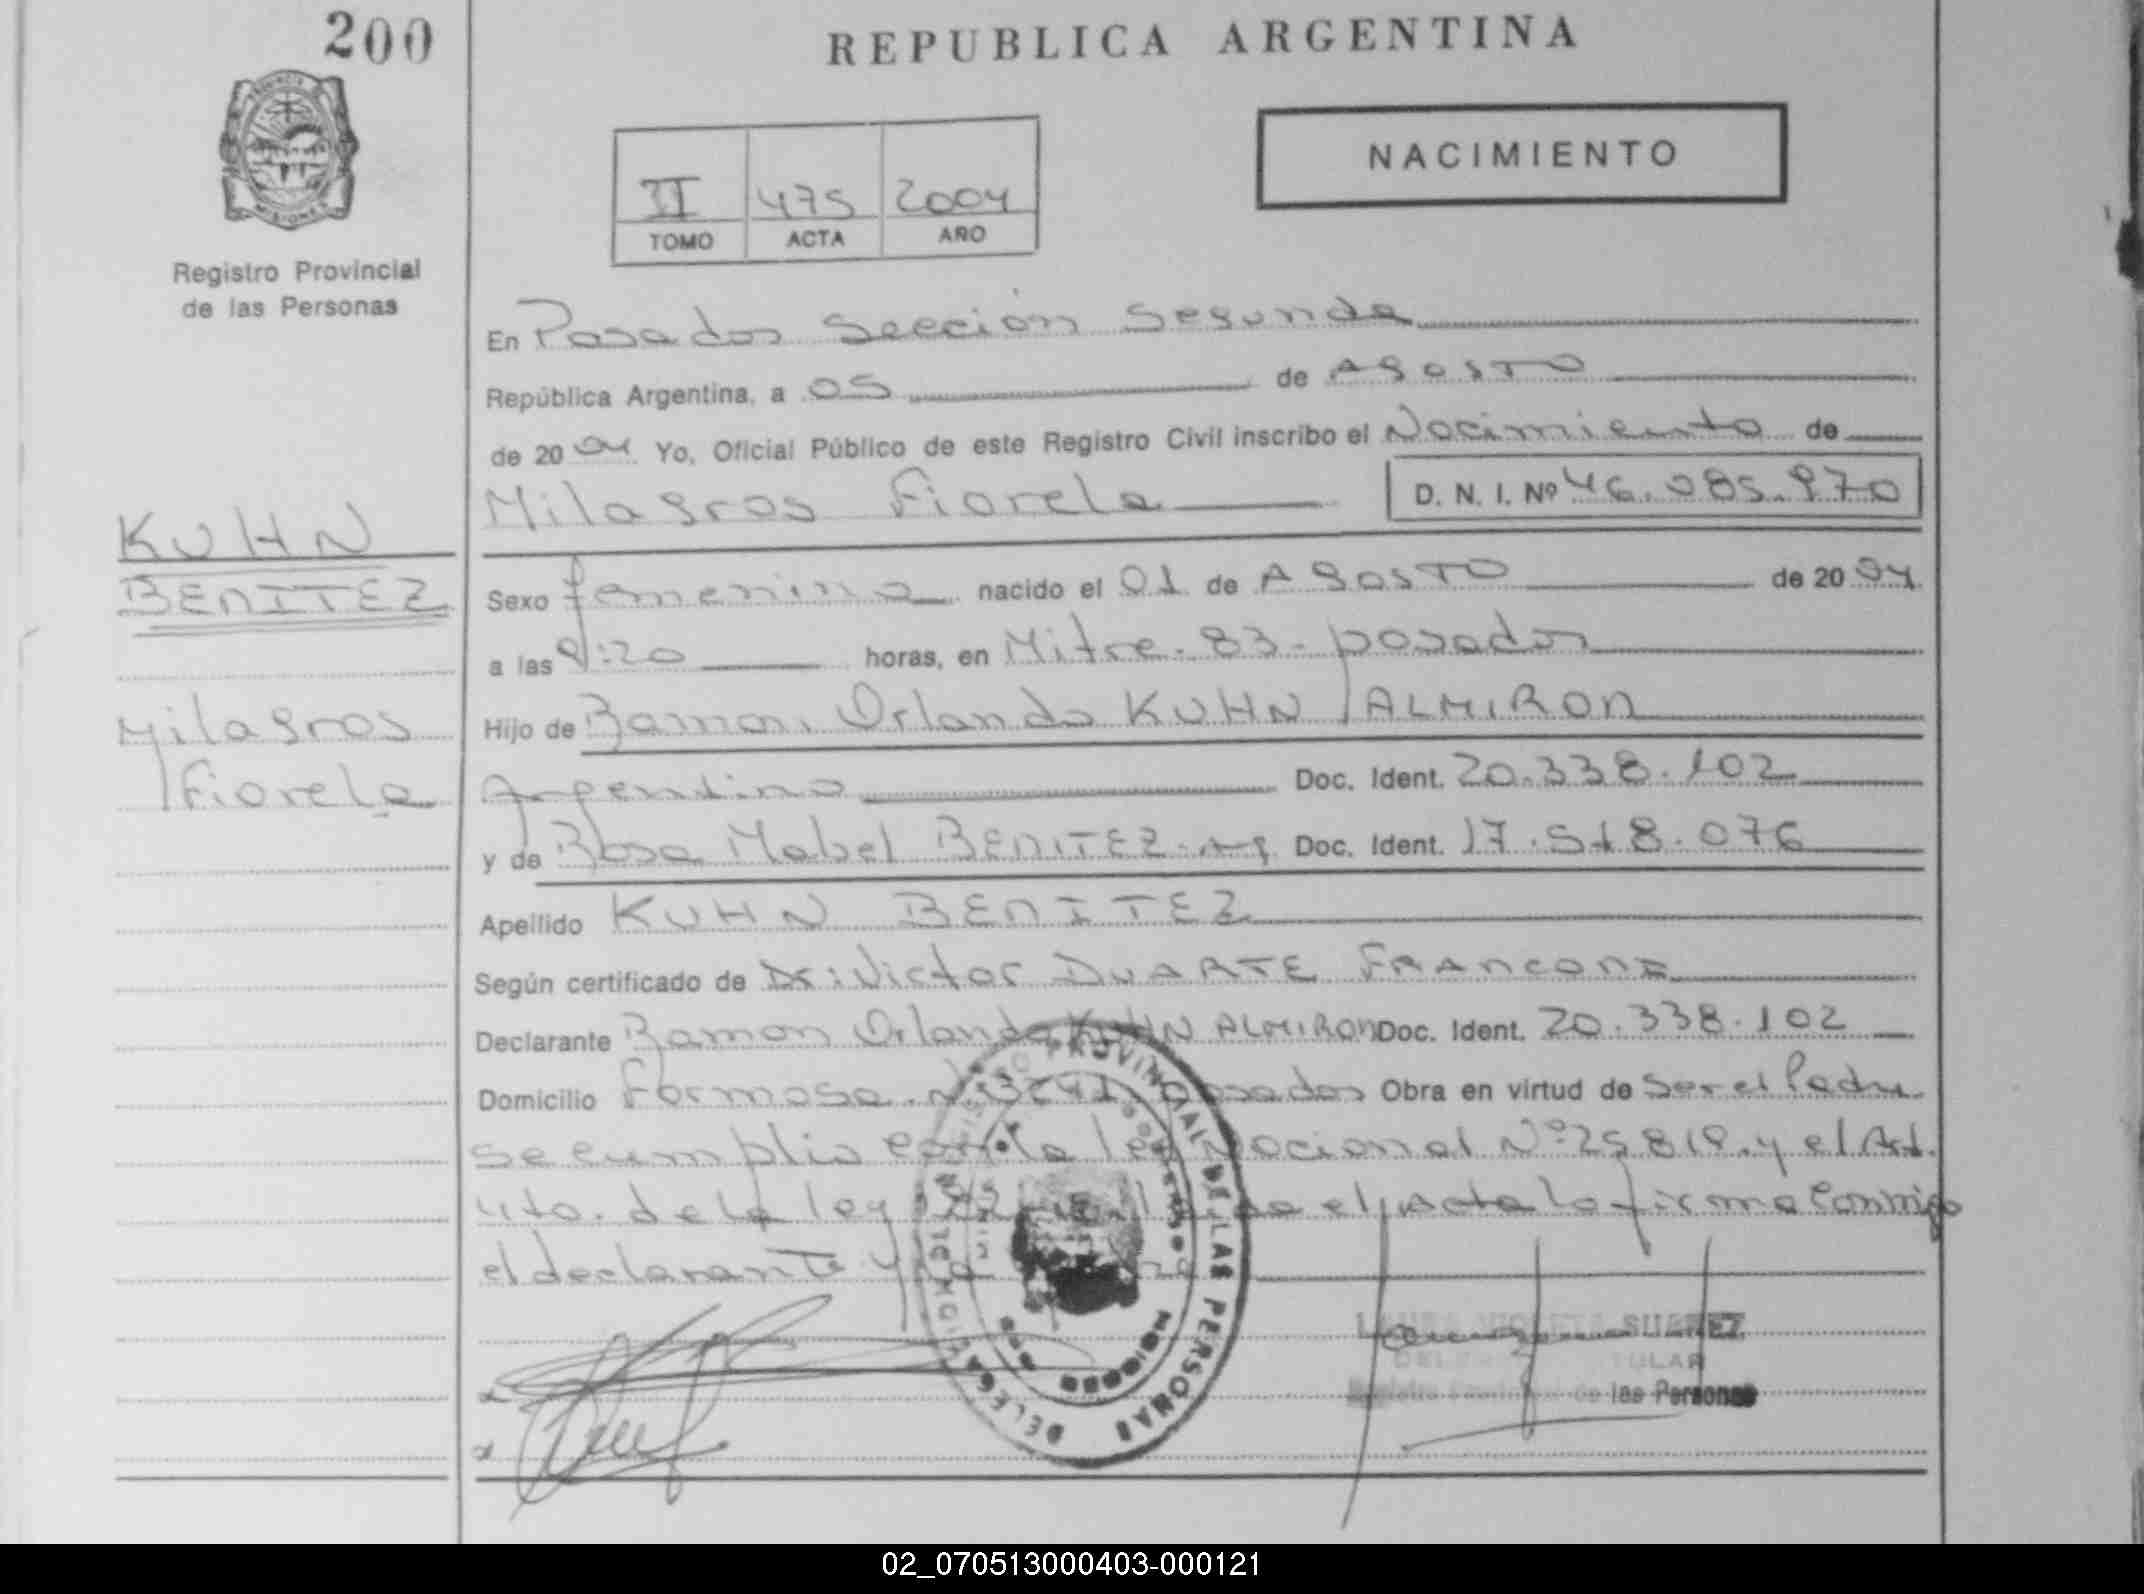 200
REPUBLICA ARGENTINA
NACIMIENTO
PROVINCIA
MISIONES
II 475 2004
TOMO ACTA AÑO
Registro Provincial
de las Personas
En Posadas Sección Segunda
República Argentina, a 05 de AGOSTO
de 2004 Yo, Oficial Público de este Registro Civil inscribo el Nacimiento de
Milagros Fiorela D. N. I. Nº 46.085.970
KUHN
BENITEZ
Milagros
Fiorela
Sexo femenino nacido el 01 de AGOSTO de 2004
a las 9:20 horas, en Mitre. 83 - posadas
Hijo de Ramon Orlando KUHN ALMIRON
Argentino Doc. Ident. 20.338.102
y de Rosa Mabel BENITEZ Doc. Ident. 17.518.076
Apellido KUHN BENITEZ
Según certificado de Dr: Victor DUARTE FRANCONE
Declarante Ramon Orlando KUHN ALMIRON Doc. Ident. 20.338.102
Domicilio Formosa Nº 3241 posadas Obra en virtud de Ser el Padre
se cumplio con la ley Nacional Nº 25.819 y el Art.
4to. de la ley el Acta lo firma conmigo
el declarante y la
PROVINCIAL DE LAS PERSONAS
SUAREZ
TULAR
de las Personas
02_070513000403-000121